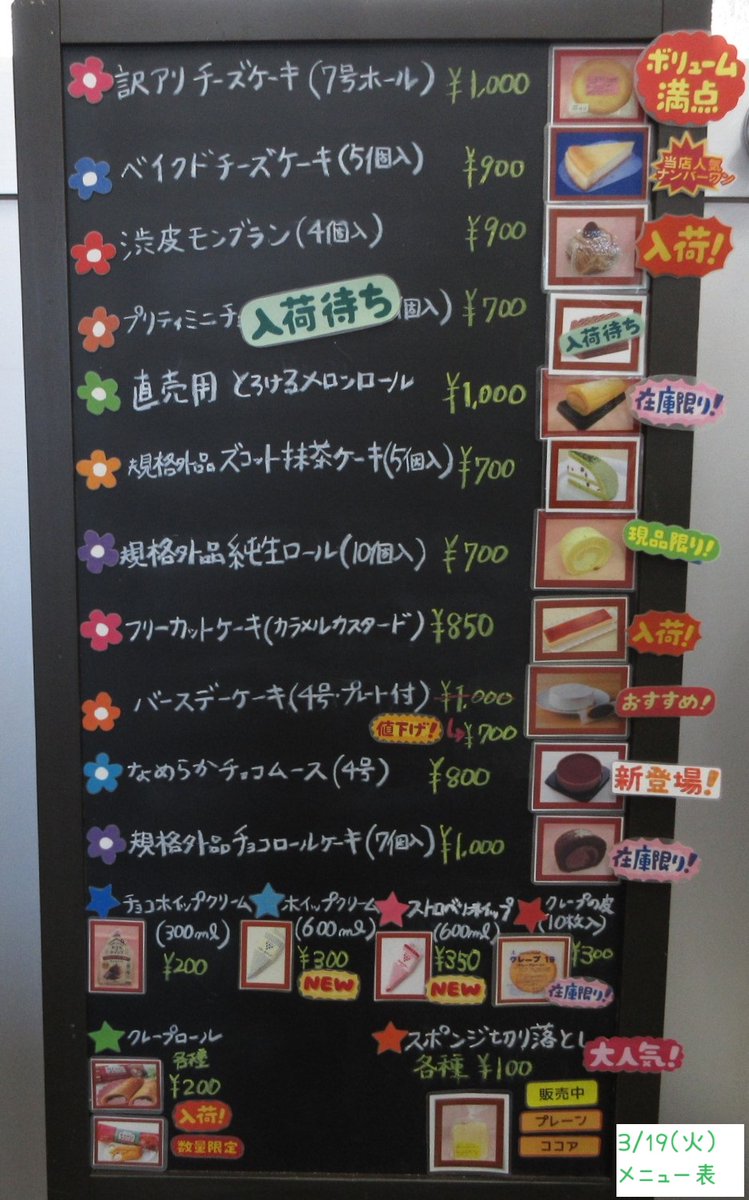 訳アリチーズケーキ(7号ホール) ¥1,000
ボリューム
満点
ベイクドチーズケーキ(5個入) ¥900
当店人気
ナンバーワン
渋皮モンブラン(4個入) ¥900
入荷!
プリティミニチ 入荷待ち 個入) ¥700
入荷待ち
直売用 とろけるメロンロール ¥1,000
在庫限り!
規格外品ズコット抹茶ケーキ(5個入) ¥700
規格外品純生ロール(10個入) ¥700
現品限り!
フリーカットケーキ(カラメルカスタード) ¥850
入荷!
バースデーケーキ(4号・プレート付) ¥1,000
値下げ! ¥700
おすすめ!
なめらかチョコムース(4号) ¥800
新登場!
規格外品チョコロールケーキ(7個入) ¥1,000
在庫限り!
チョコホイップクリーム
(300ml)
¥200
ホイップクリーム
(600ml)
¥300
NEW
ストロベリーホイップ
(600ml)
¥350
NEW
クレープの皮
(10枚入)
¥300
在庫限り!
クレープロール
各種
¥200
入荷!
数量限定
スポンジ切り落とし
各種 ¥100
大人気!
販売中
プレーン
ココア
3/19(火)
メニュー表